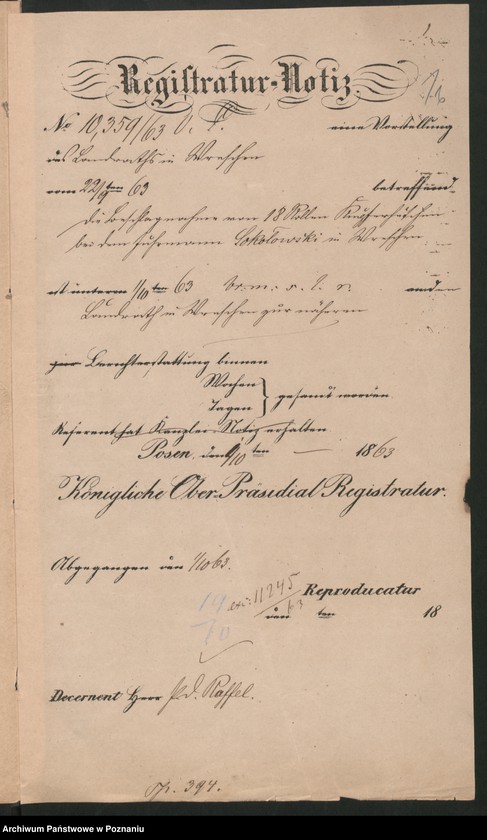 1
Registratur-Notiz.
No 10,359/63 O. P. eine Vorstellung
des Landraths in Wreschen
vom 22/9 ten 63 betreffend
die Beschlagnahme von 18 Rollen
bei dem Fuhrmann Sokolowski in Wreschen
ist unterm 1/10 ten 63 br. m. s. l. r. an den
Landrath in Wreschen zur näheren
zur Berichterstattung binnen
Wochen
Tagen } gesandt worden.
Referent hat Kanzlei-Notiz erhalten
Posen, den 1/10 ten — 1863
Königliche Ober-Präsidial Registratur.
Abgegangen den 1/10 63.
11245/63
Reproducatur
den ten 18
19
70
Decernent Herr Raffel.
394.
Archiwum Państwowe w Poznaniu